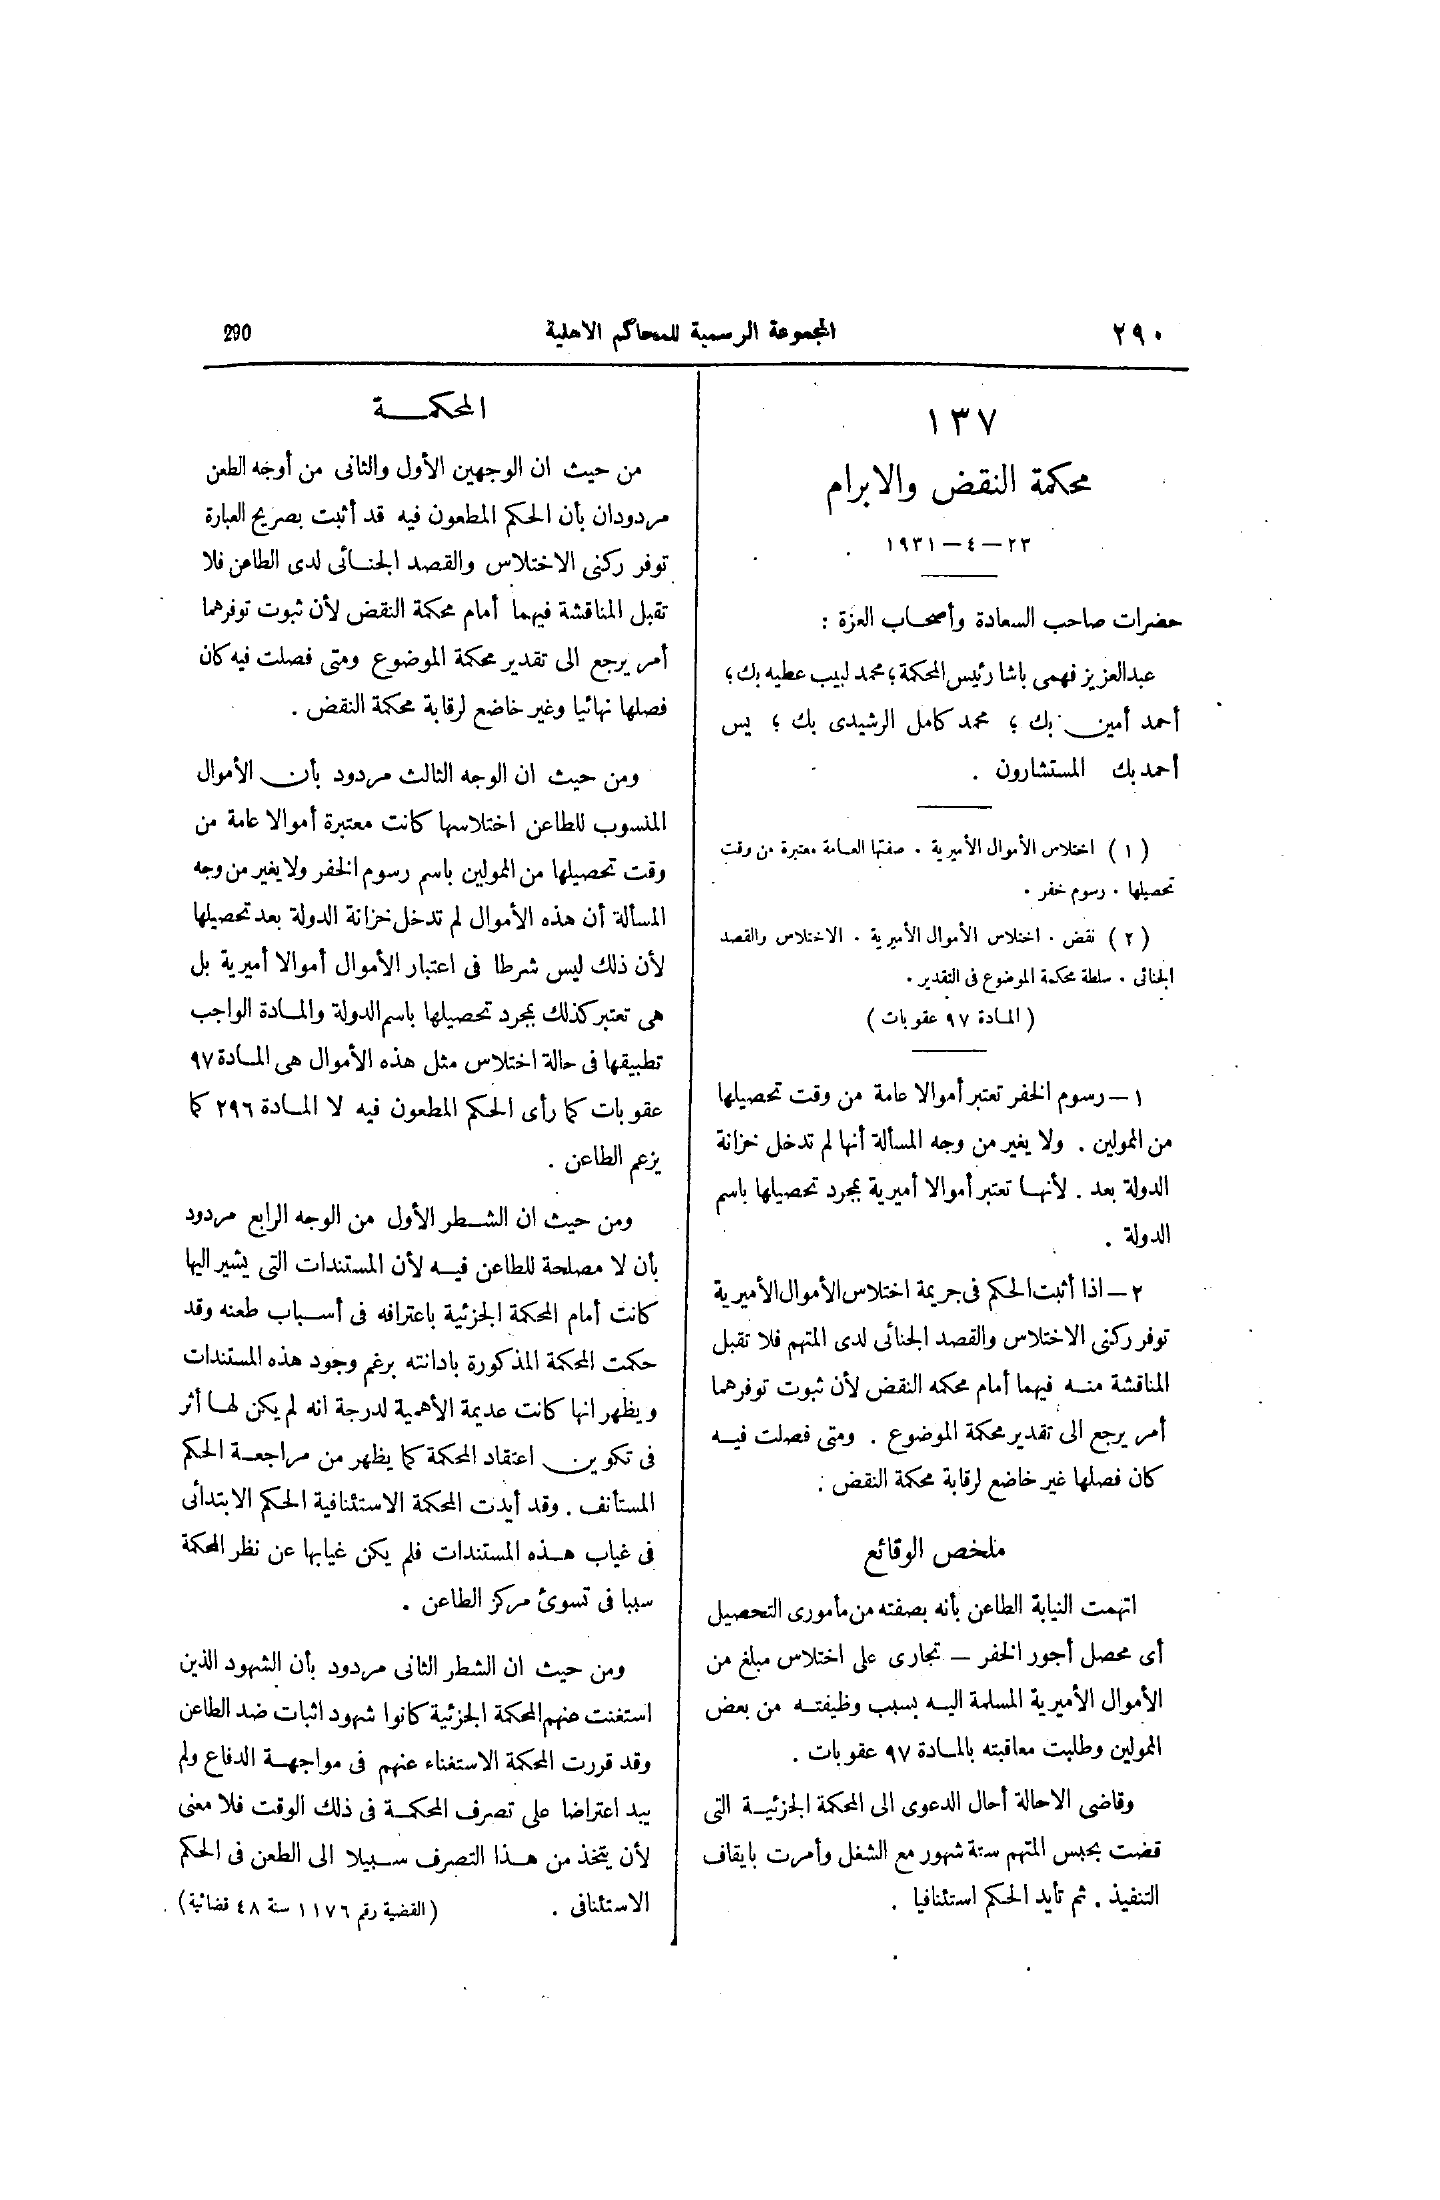 ٢٩٠ المجموعة الرسمية للمحاكم الاهلية 290
١٣٧
محكمة النقض والابرام
٢٣ – ٤ – ١٩٣١
حضرات صاحب السعادة وأصحاب العزة :
عبدالعزيز فهمى باشا رئيس المحكمة ؛ محمد لبيب عطيه بك ؛
أحمد أمين بك ؛ محمد كامل الرشيدى بك ؛ يس
أحمد بك المستشارون .
( ١ ) اختلاس الأموال الأميرية . صفتها العامة معتبرة من وقت
تحصيلها . رسوم خفر .
( ٢ ) نقض . اختلاس الأموال الأميرية . الاختلاس والقصد
الجنائى . سلطة محكمة الموضوع فى التقدير .
( المادة ٩٧ عقوبات )
١ – رسوم الخفر تعتبر أموالا عامة من وقت تحصيلها
من الممولين . ولا يغير من وجه المسألة أنها لم تدخل خزانة
الدولة بعد . لأنها تعتبر أموالا أميرية بمجرد تحصيلها باسم
الدولة .
٢ – اذا أثبت الحكم فى جريمة اختلاس الأموال الأميرية
توفر ركنى الاختلاس والقصد الجنائى لدى المتهم فلا تقبل
المناقشة منه فيهما أمام محكمه النقض لأن ثبوت توفرهما
أمر يرجع الى تقدير محكمة الموضوع . ومتى فصلت فيه
كان فصلها غير خاضع لرقابة محكمة النقض .
ملخص الوقائع
اتهمت النيابة الطاعن بأنه بصفته من مأمورى التحصيل
أى محصل أجور الخفر – تجارى على اختلاس مبلغ من
الأموال الأميرية المسلمة اليه بسبب وظيفته من بعض
الممولين وطلبت معاقبته بالمادة ٩٧ عقوبات .
وقاضى الاحالة أحال الدعوى الى المحكمة الجزئية التى
قضت بحبس المتهم ستة شهور مع الشغل وأمرت بايقاف
التنفيذ . ثم تأيد الحكم استئنافيا .
المحكمة
من حيث ان الوجهين الأول والثانى من أوجه الطعن
مردودان بأن الحكم المطعون فيه قد أثبت بصريح العبارة
توفر ركنى الاختلاس والقصد الجنائى لدى الطاعن فلا
تقبل المناقشة فيهما أمام محكمة النقض لأن ثبوت توفرهما
أمر يرجع الى تقدير محكمة الموضوع ومتى فصلت فيه كان
فصلها نهائيا وغير خاضع لرقابة محكمة النقض .
ومن حيث ان الوجه الثالث مردود بأن الأموال
المنسوب للطاعن اختلاسها كانت معتبرة أموالا عامة من
وقت تحصيلها من الممولين باسم رسوم الخفر ولا يغير من وجه
المسألة أن هذه الأموال لم تدخل خزانة الدولة بعد تحصيلها
لأن ذلك ليس شرطا فى اعتبار الأموال أموالا أميرية بل
هى تعتبر كذلك بمجرد تحصيلها باسم الدولة والمادة الواجب
تطبيقها فى حالة اختلاس مثل هذه الأموال هى المادة ٩٧
عقوبات كما رأى الحكم المطعون فيه لا المادة ٢٩٦ كما
يزعم الطاعن .
ومن حيث ان الشطر الأول من الوجه الرابع مردود
بأن لا مصلحة للطاعن فيه لأن المستندات التى يشير اليها
كانت أمام المحكمة الجزئية باعترافه فى أسباب طعنه وقد
حكمت المحكمة المذكورة بادانته برغم وجود هذه المستندات
ويظهر انها كانت عديمة الأهمية لدرجة انه لم يكن لها أثر
فى تكوين اعتقاد المحكمة كما يظهر من مراجعة الحكم
المستأنف . وقد أيدت المحكمة الاستئنافية الحكم الابتدائى
فى غياب هذه المستندات فلم يكن غيابها عن نظر المحكمة
سببا فى تسوئ مركز الطاعن .
ومن حيث ان الشطر الثانى مردود بأن الشهود الذين
استغنت عنهم المحكمة الجزئية كانوا شهود اثبات ضد الطاعن
وقد قررت المحكمة الاستغناء عنهم فى مواجهة الدفاع ولم
يبد اعتراضا على تصرف المحكمة فى ذلك الوقت فلا معنى
لأن يتخذ من هذا التصرف سبيلا الى الطعن فى الحكم
الاستئنافى . ( القضية رقم ١١٧٦ سنة ٤٨ قضائية )